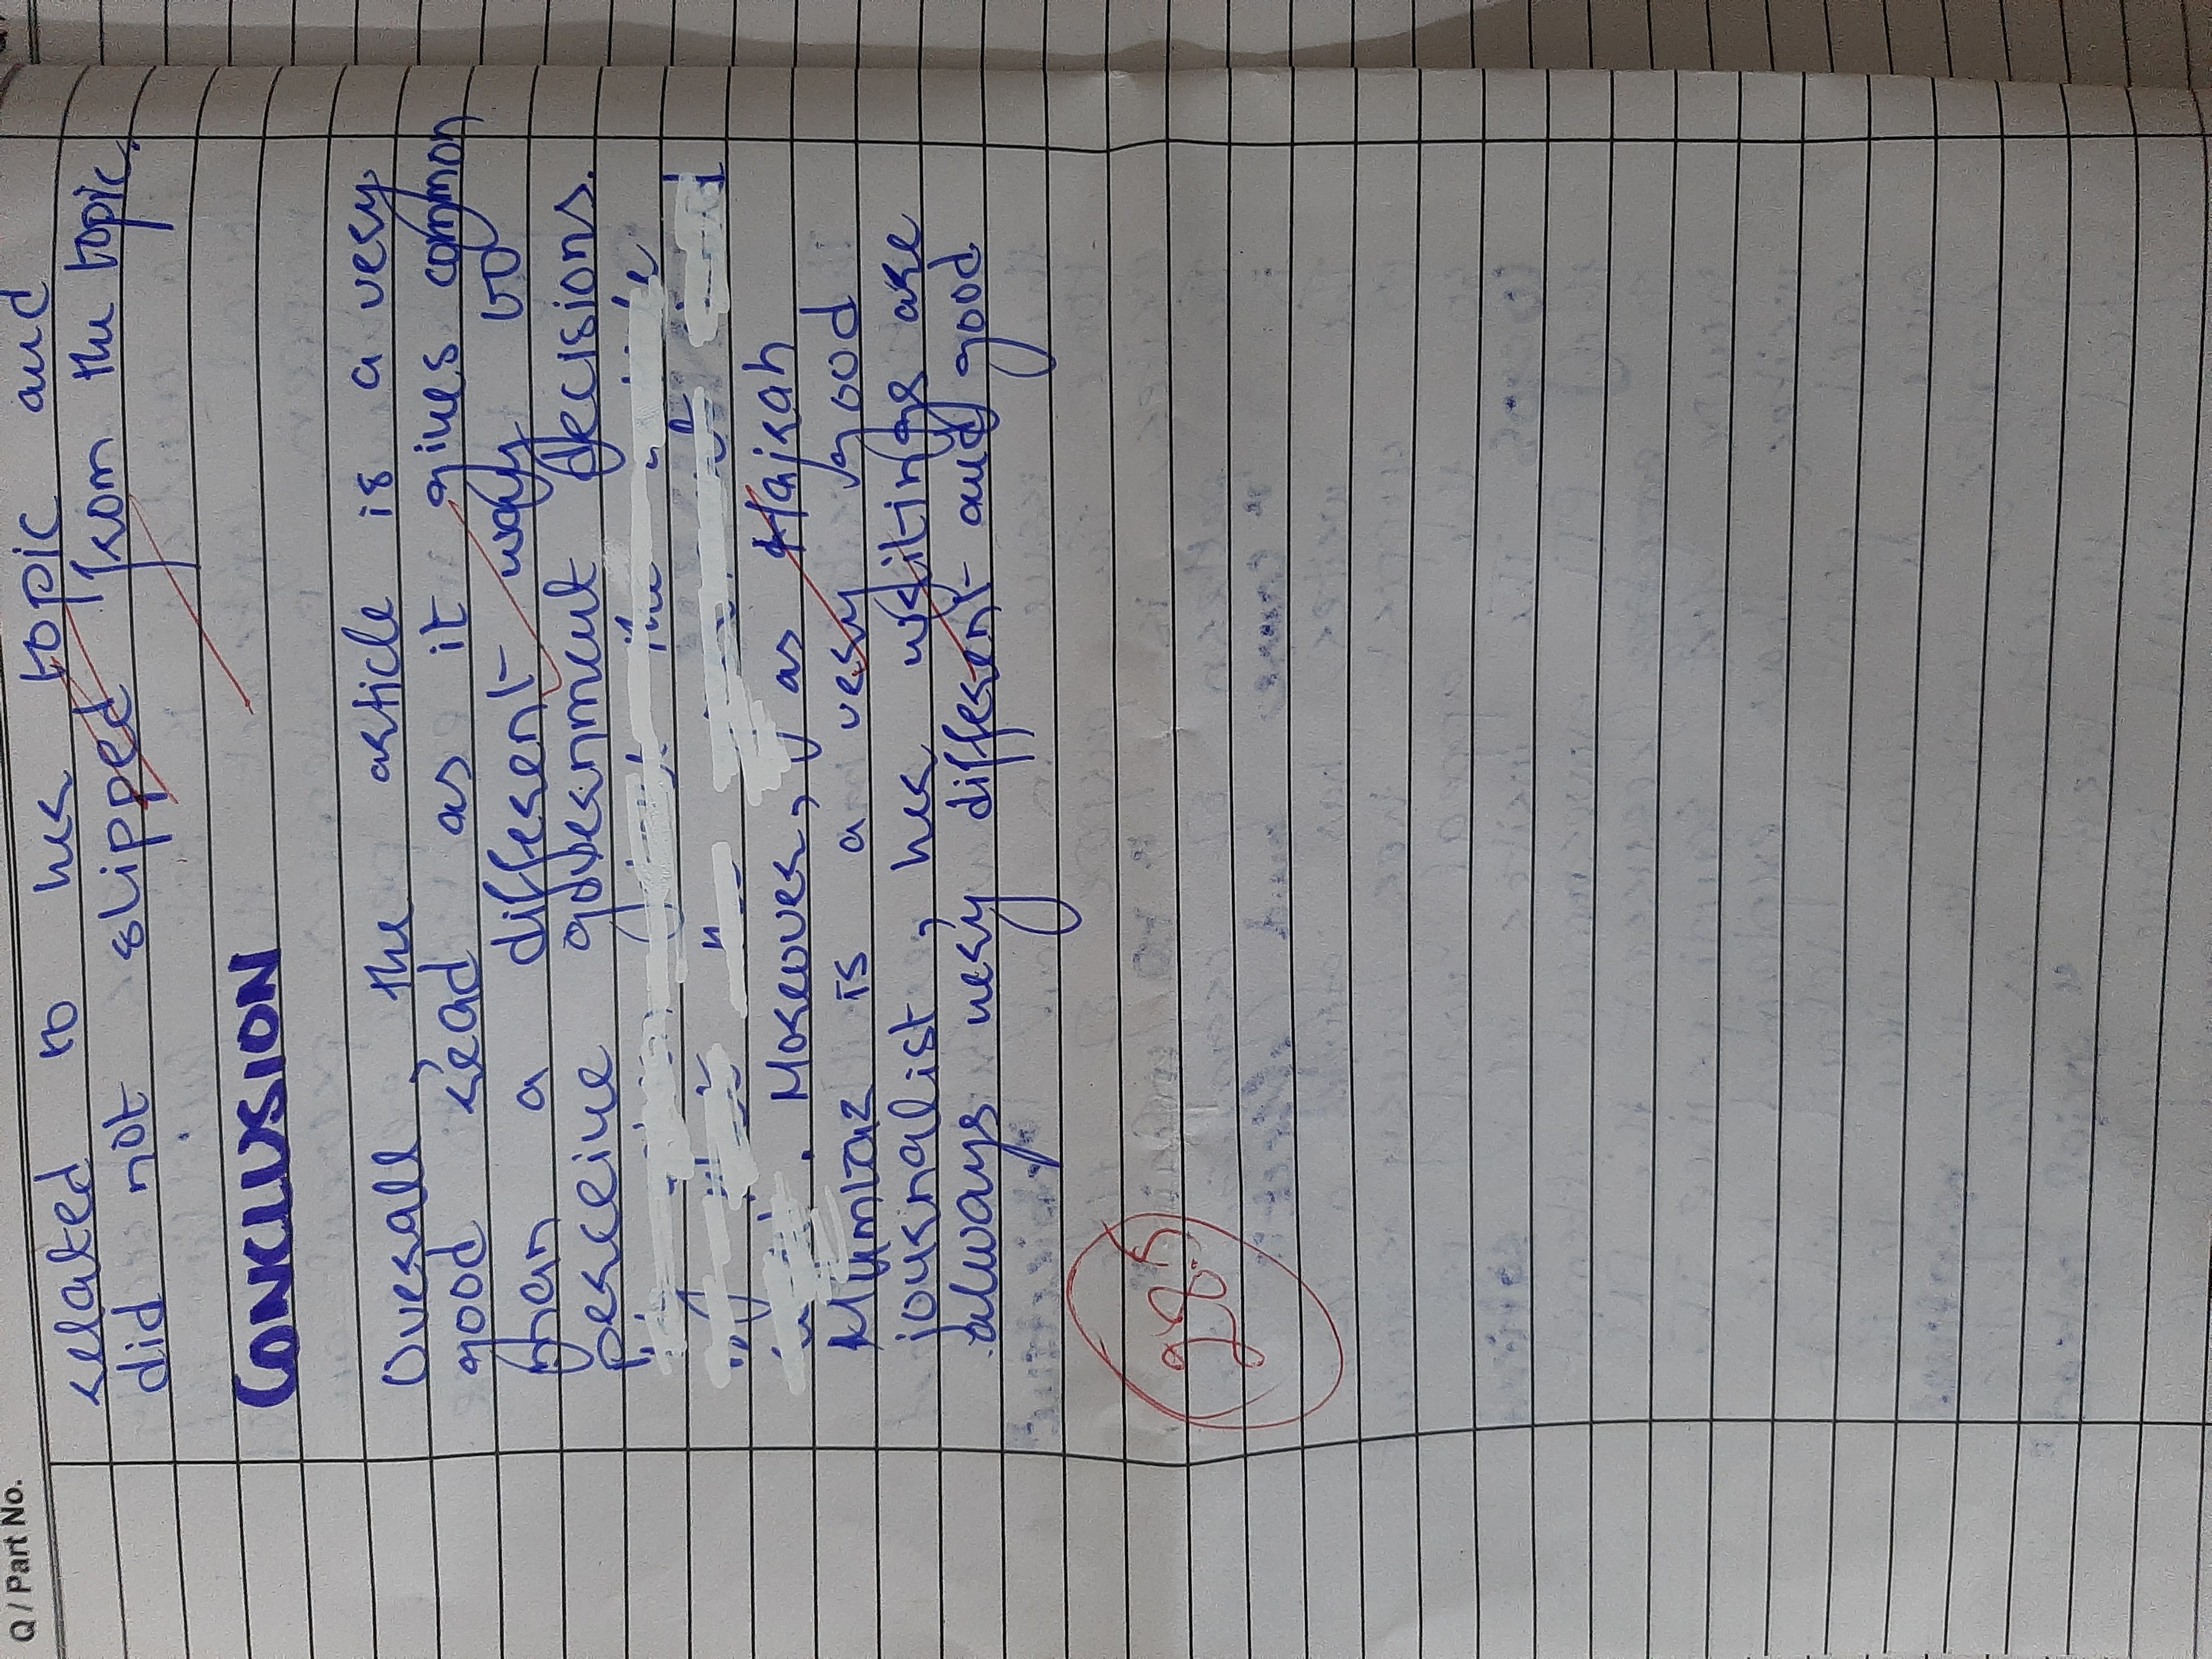 Q / Part No.
related to her topic and
did not slipped from the topic.
CONCLUSION
Overall the article is a very
good read as it gives common
man a different way to
perceive government decisions.
the
. Moreover, as Hajrah
Mumtaz is a very good
journalist, her writings are
always very different and good
28.5